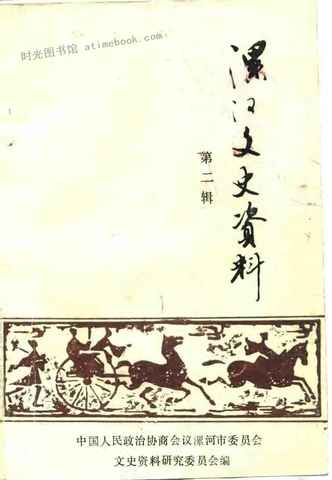 时光图书馆 atimebook.com
漯河文史资料
第二辑
中国人民政治协商会议漯河市委员会
文史资料研究委员会编